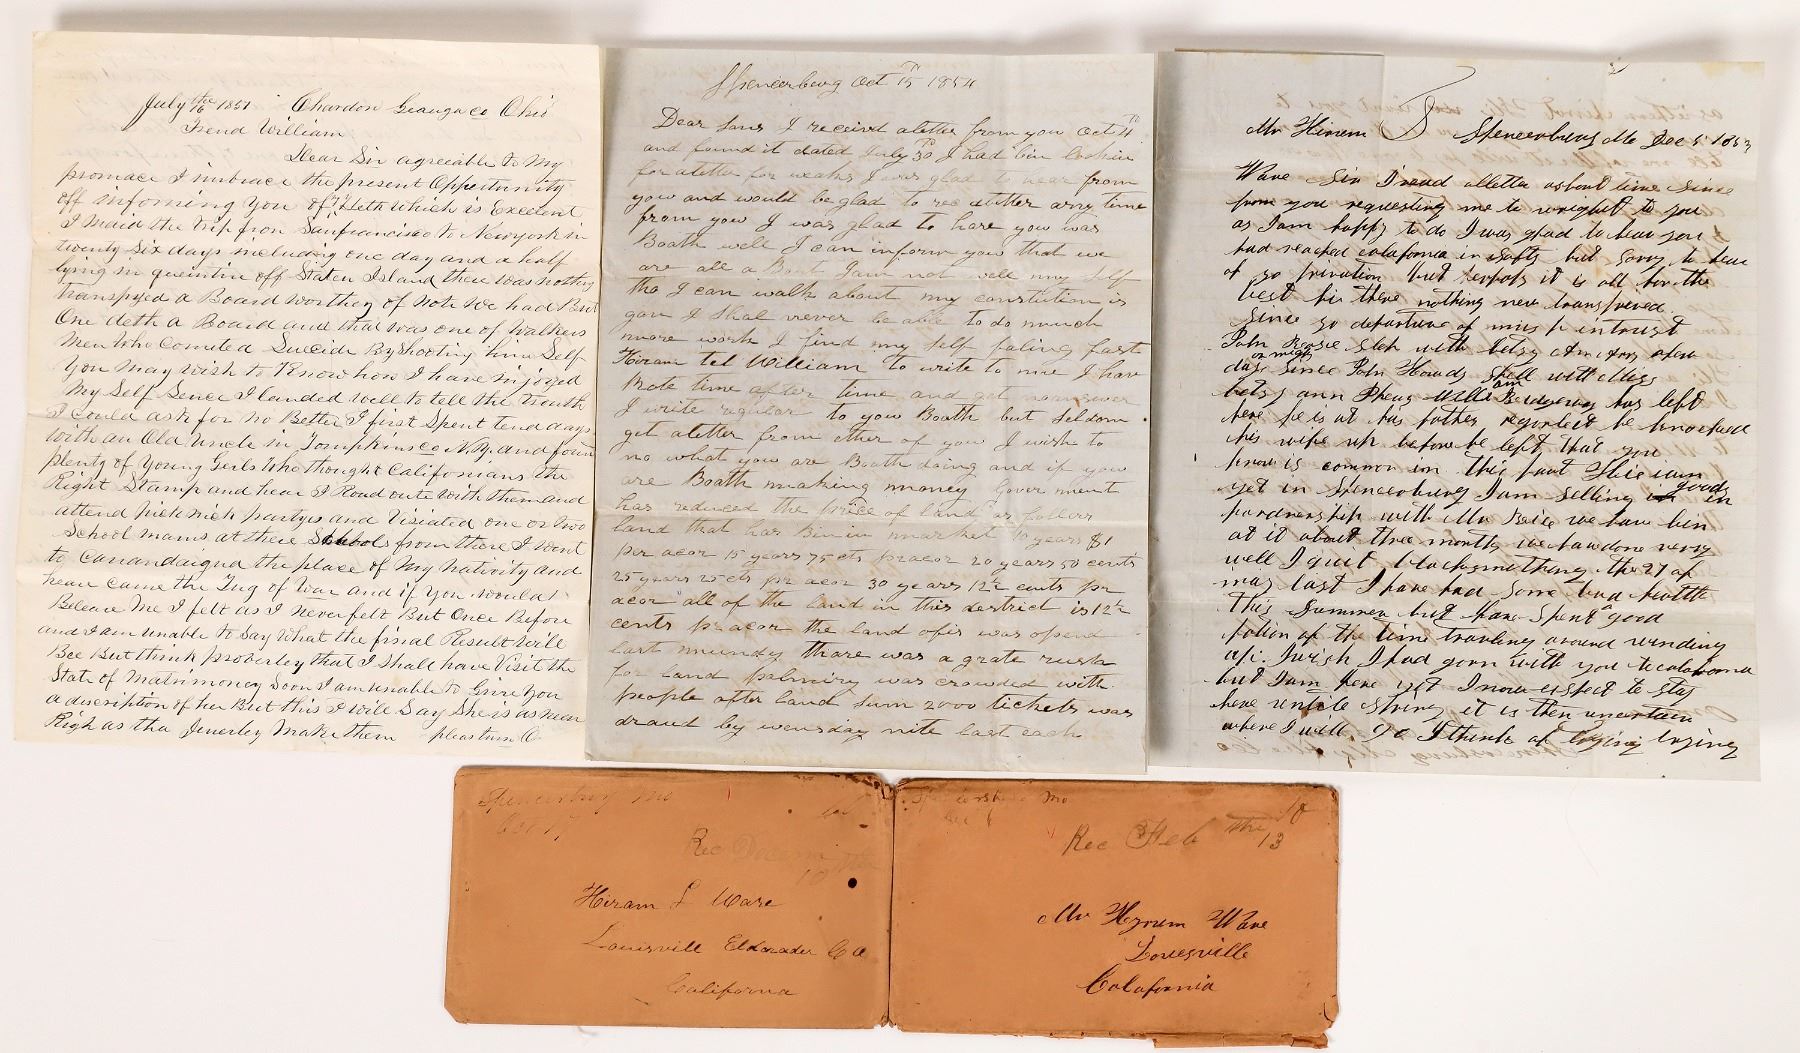 July 16th 1857 Chardon Geauga co Ohio
Frend William
Dear Sir agreeable to My
promace I imbrace the present Oppertunity
off informing you of Helth which is Excelent
I maid the trip from Sanfrancisco to Newyork in
twenty six days including one day and a half
lying in quentin off Staten Island there was nothing
transpyed a Board worthey of Note We had But
One deth a Board and that was one of Walkers
Men Who Comited Suecide By Shooting him Self
You May wish to Know how I have injoyed
My Self Since I landed well to tell the trouth
I Could ask for no Better I first Spent ten days
with an Old Uncle in Tompkins co N.Y. and foun
plenty of Young Girls Who thought Californians the
Right Stamp and hear I Road oute with them and
attend pick nick partys and Visiated one or two
School mams at there Schools from there I Went
to Canandaigua the place of My Nativity and
hear came the Tug of War and if you would
Beleave Me I felt as I never felt But Once Before
and I am unable to Say What the final Result Will
Bee But think proberley that I Shall have Visit the
State of Matrimoney Soon I am unable to Give you
a description of her But this I will Say She is as near
Righ as tha Jenerley Make them
Spencerburg Oct 15th 1854
Dear Sons I received aletter from you Oct 4th
and found it dated July 30th I had bin lookin
for aletter for weaks I was glad to hear from
you and would be glad to rec aletter any time
from you I was glad to hare you was
Boath well I can inform you that we
are all a Bout I am not well my self
tho I can walk about my constution is
gon I shal never be able to do much
more work I find my self faling fast
Hiram tel William to write to me I have
Rote time after time and got no answer
I write regular to you Boath but seldom
get aletter from ether of you I wish to
no what you are Boath doing and if you
are Boath making money Government
has reduced the price of land as follows
land that has Bin in market 10 years $1
per acor 15 years 75 cts pr acor 20 years 50 cents
25 years 25 cts pr acor 30 years 12½ cents pr
acor all of the land in this district is 12½
cents pr acor the land ofis was opend
last munday thare was a grate rush
for land was crowded with
people after land sum 2000 tickets was
draud by wensday nite last each
Mr Hirem Spencerburg Mo Dec 5 1853
Ware Sir I read alletter ashort time since
from you requesting me to wright to you
as I am happy to do I was glad to hear you
had reached calafornia in safty but sorry to hear
of yo privation but serpose it is all for the
best sir there nothing new transpired
since yo departure of much intrust
John step with betsy a few
days since John Howds with Miss
betsy ann William has left
here he is at his father reported he knocked
his wife up before he left that you
know is common in this part Still I am
yet in Spencerburg I am selling goods in
pardnership with Mr we have bin
at it about three months we haw done verry
well I quit blacksmithing the 27 of
may last I have had some bad health
this summer but have spent a good
potion of the time travling around
I wish I had gorn with you to calafornia
but I am here yet I now expect to stay
here untile spring it is then uncertain
where I will go I think of trying
Spencerburg Mo
Oct 17
Rec Decem the
10
Hiram L Ware
Louisvill Eldorado Co
California
Mo
Rec Feb the
13
10
Mr Hyrum Ware
Louesville
Calafornia